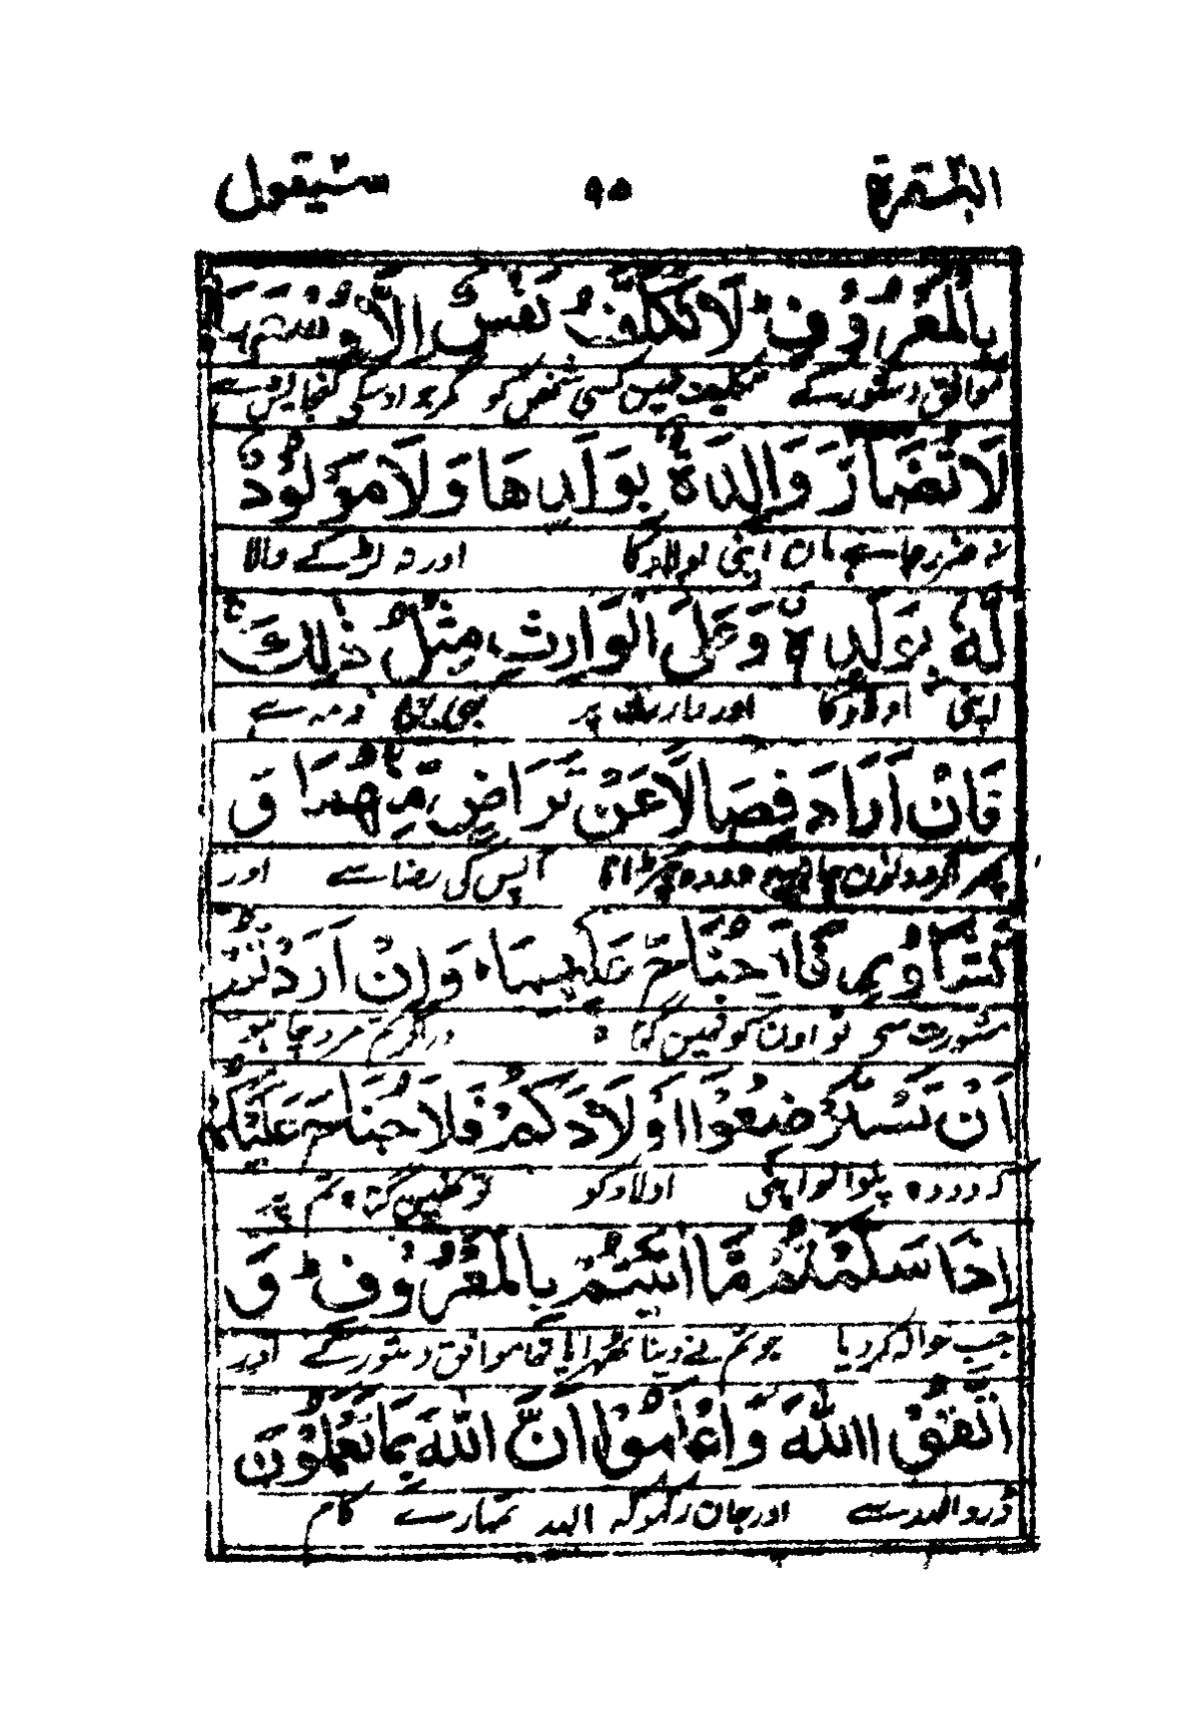 البقرة ٩٥ سيقول
بِالْمَعْرُوْفِ ط لَا تُكَلَّفُ نَفْسٌ اِلَّا وُسْعَهَا
موافق دستور کے تکلیف نہیں کسی شخص کو مگر جو اوسکی گنجایش ہے
لَا تُضَآرَّ وَالِدَةٌ بِوَلَدِهَا وَلَا مَوْلُوْدٌ
نہ ضرر چاہے ماں اپنی اولاد کا اور نہ لڑکے والا
لَّهٗ بِوَلَدِهٖ وَعَلَى الْوَارِثِ مِثْلُ ذٰلِكَ
اپنی اولاد کا اور وارث پر بھی یہی ذمہ ہے
فَاِنْ اَرَادَا فِصَالًا عَنْ تَرَاضٍ مِّنْهُمَا وَ
پھر اگر دونوں چاہیں دودھ چھڑانا آپس کی رضا سے اور
تَشَاوُرٍ فَلَا جُنَاحَ عَلَيْهِمَا وَاِنْ اَرَدْتُّمْ
مشورت سے تو اون کو نہیں گناہ اور اگر تم مرد چاہو
اَنْ تَسْتَرْضِعُوْا اَوْلَادَكُمْ فَلَا جُنَاحَ عَلَيْكُمْ
کہ دودہ پلوا لو اپنی اولاد کو تو نہیں گناہ تم پر
اِذَا سَلَّمْتُمْ مَّا اٰتَيْتُمْ بِالْمَعْرُوْفِ ط وَ
جب حوالہ کر دیا جو تم نے دینا ٹھہرایا تھا موافق دستور کے اور
اتَّقُوا اللّٰهَ وَاعْلَمُوْا اَنَّ اللّٰهَ بِمَا تَعْمَلُوْنَ
ڈرو اللہ سے اور جان رکھو کہ اللہ تمہارے کام